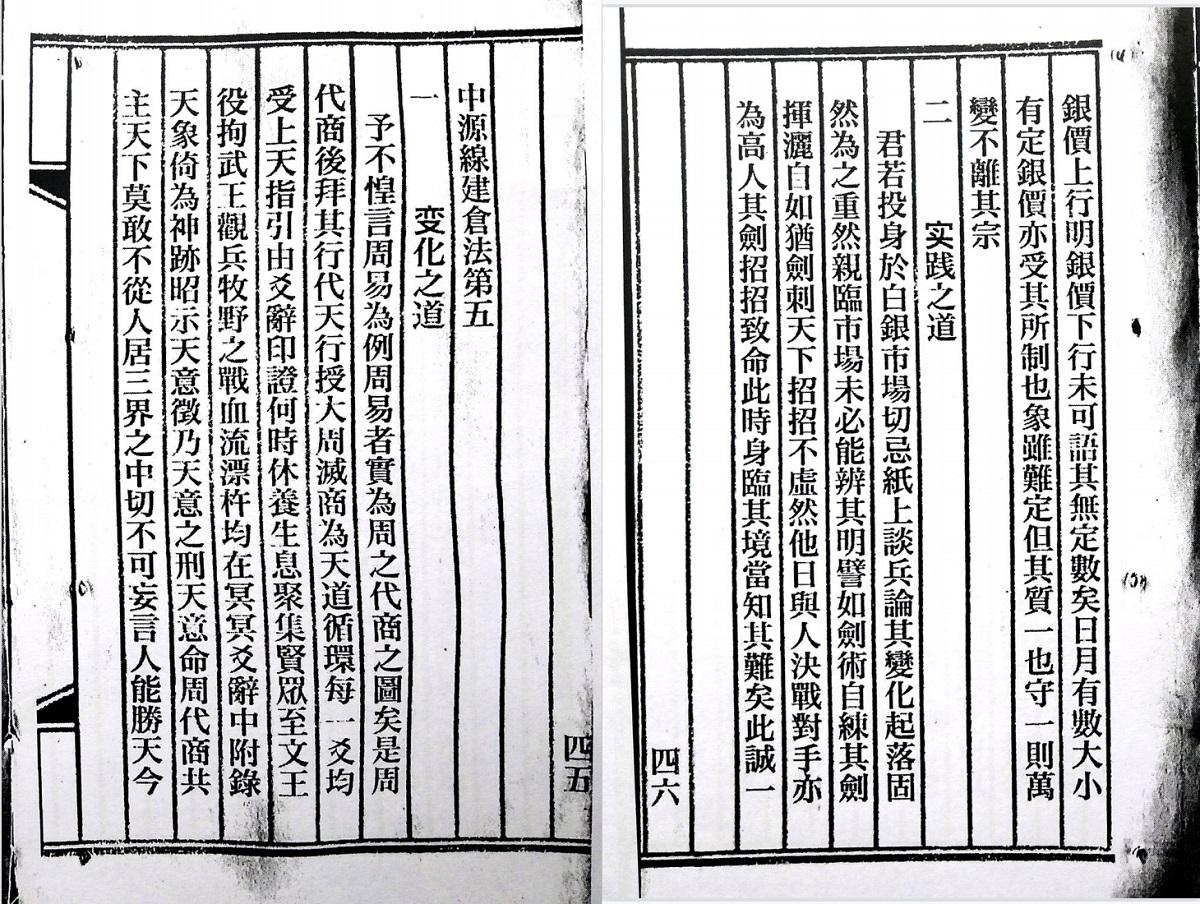 中源線建倉法第五
一 变化之道
予不惶言周易為例周易者實為周之代商之圖矣是周
代商後拜其行代天行授大周滅商為天道循環每一爻均
受上天指引由爻辭印證何時休養生息聚集賢眾至文王
役拘武王觀兵牧野之戰血流漂杵均在冥冥爻辭中附錄
天象倚為神跡昭示天意徵乃天意之刑天意命周代商共
主天下莫敢不從人居三界之中切不可妄言人能勝天今
四五
銀價上行明銀價下行未可語其無定數矣日月有數大小
有定銀價亦受其所制也象雖難定但其質一也守一則萬
變不離其宗
二 实践之道
君若投身於白銀市場切忌紙上談兵論其變化起落固
然為之重然親臨市場未必能辨其明譬如劍術自練其劍
揮灑自如猶劍刺天下招招不虛然他日與人決戰對手亦
為高人其劍招招致命此時身臨其境當知其難矣此誠一
四六